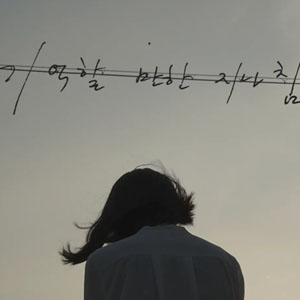 기억할 만한 지나침